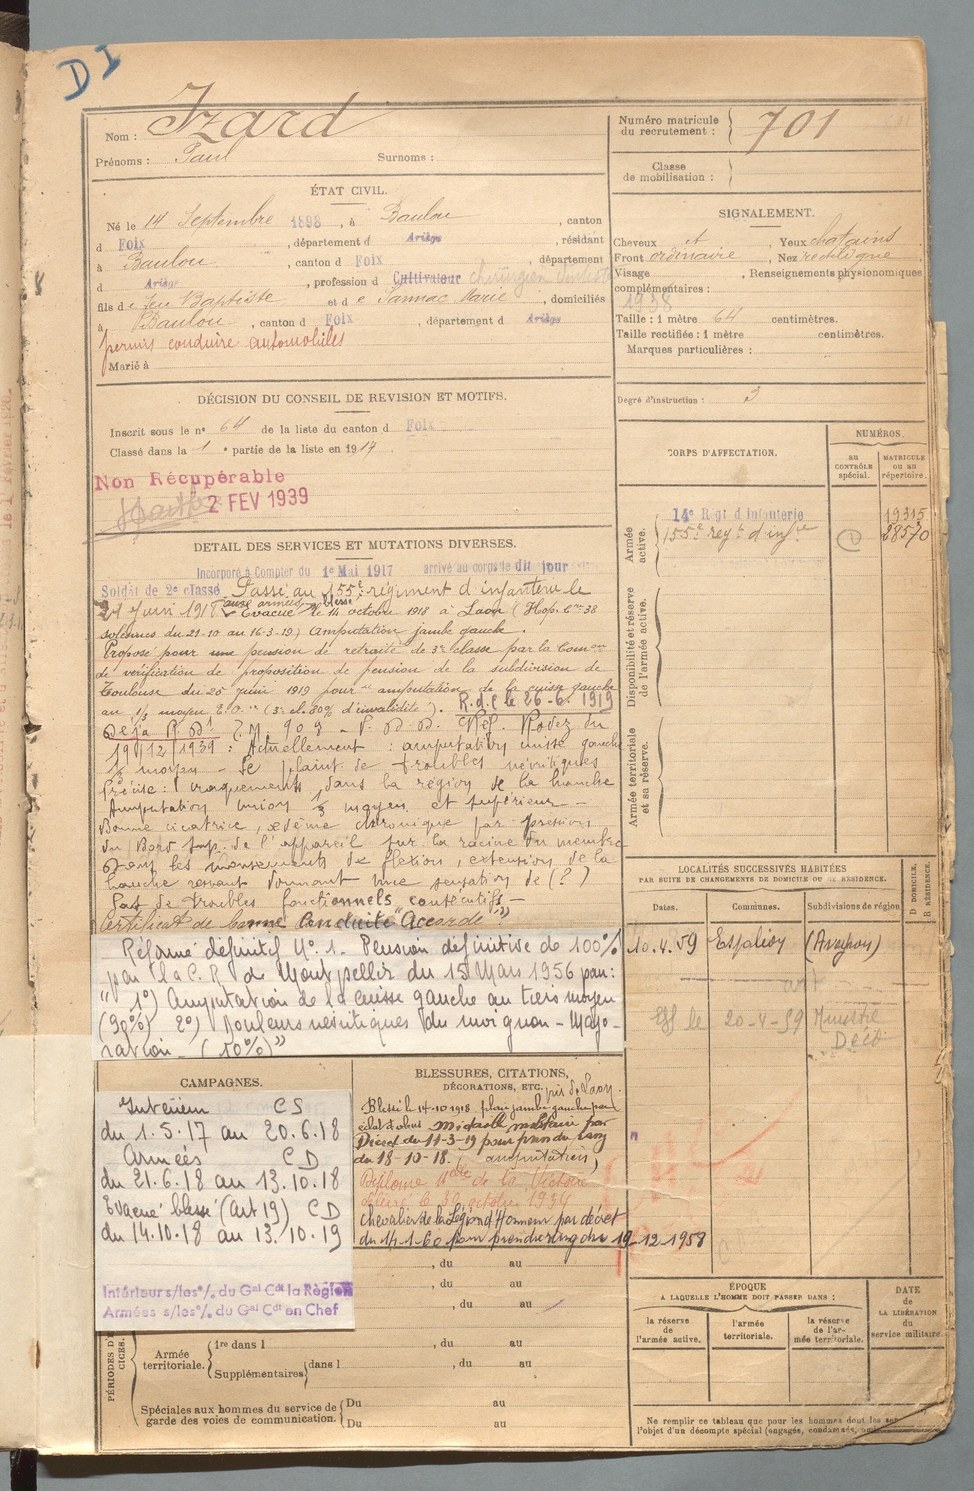 DI
Nom : Izard
Prénoms : Paul Surnoms :
Numéro matricule du recrutement : 701
Classe de mobilisation :
ÉTAT CIVIL.
Né le 14 Septembre 1898, à Baulou, canton
d Foix, département d Ariège, résidant
à Baulou, canton d Foix, département
d Ariège, profession d Cultivateur chirurgien dentiste
fils de feu Baptiste et de Marie, domiciliés
à Baulou, canton d Foix, département d Ariège
permis conduire automobiles
Marié à
SIGNALEMENT.
Cheveux et, Yeux chatains
Front ordinaire, Nez rectiligne
Visage, Renseignements physionomiques
complémentaires :
1938
Taille : 1 mètre 64 centimètres.
Taille rectifiée : 1 mètre centimètres.
Marques particulières :
Degré d'instruction : 3
DÉCISION DU CONSEIL DE REVISION ET MOTIFS.
Inscrit sous le nº 64 de la liste du canton d Foix
Classé dans la 1e partie de la liste en 1917.
Non Récupérable
2 FEV 1939
CORPS D'AFFECTATION.
NUMÉROS.
AU CONTRÔLE spécial.
MATRICULE OU AU répertoire.
Armée active.
14e Regt d'infanterie 19315
155e regt d'infie 28570
Disponibilité et réserve de l'armée active.
Armée territoriale et sa réserve.
DETAIL DES SERVICES ET MUTATIONS DIVERSES.
Incorporé à Compter du 1e Mai 1917 arrivé au corps le dit jour
Soldat de 2e classe. Passé au 155e régiment d'infanterie le
21 Juin 1918 aux armées. Evacué blessé le 14 octobre 1918 à Laon (Hop. 38
du 21-10 au 16-3-19) Amputation jambe gauche.
Proposé pour une pension de retraite de 3e classe par la Comon
de vérification de proposition de pension de la subdivision de
Toulouse du 25 juin 1919 pour "amputation de la cuisse gauche
au 1/3 moyen (3e cl. 80% d'invalidité). R.d.l le 26-6-1919
Déjà R.D1
19/12/1939 : Actuellement : amputation cuisse gauche
1/3 moyen - Se plaint de troubles névritiques
Précise : craquements dans la région de la hanche
Amputation union 1/3 moyen et supérieur -
Bonne cicatrice, œdème chronique par pression
du Bord sup. de l'appareil sur la racine du membre
les mouvements de flexion, extension de la
hanche donnant une sensation de (?)
Pas de troubles fonctionnels consécutifs -
Certificat de bonne Conduite "Accordé"
Réformé définitif Nº 1. Pension définitive de 100%
par la C.R. de Montpellier du 15 Mars 1956 pour :
" 1º) Amputation de la cuisse gauche au tiers moyen
(90%) 2º) Douleurs névritiques du moignon - Majo-
ration - (10%)"
LOCALITÉS SUCCESSIVES HABITÉES
PAR SUITE DE CHANGEMENTS DE DOMICILE OU DE RÉSIDENCE.
Dates. Communes. Subdivisions de région D DOMICILE. R RÉSIDENCE.
10.4.59 Espalion (Aveyron)
art
le 20-4-59
CAMPAGNES.
Intérieur CS
du 1.5.17 au 20.6.18
Armées CD
du 21.6.18 au 13.10.18
Evacué blessé (art 19) CD
du 14.10.18 au 13.10.19
Intérieur s/les º/. du Gal Cdt la Région
Armées s/les º/. du Gal Cdt en Chef
BLESSURES, CITATIONS,
DÉCORATIONS, ETC.
près de Laon.
Blessé le 14-10-1918 plaie jambe gauche par
éclat d'obus Médaille militaire par
Décret du 11-3-19 pour prendre rang
du 18-10-18. (amputation)
Diplôme Médle de la Victoire
délivré le 30 octobre 1934
Chevalier de la Légion d'Honneur par décret
du 14-1-60 pour prendre rang du 19-12-1958
, du au
, du au
, du au
PÉRIODES D'EXERCICES.
Armée territoriale.
1re dans l , du au
Supplémentaires dans l , du au
Spéciales aux hommes du service de garde des voies de communication.
Du au
Du au
ÉPOQUE
A LAQUELLE L'HOMME DOIT PASSER DANS :
la réserve de l'armée active.
l'armée territoriale.
la réserve de l'armée territoriale.
DATE de LA LIBÉRATION du service militaire.
Ne remplir ce tableau que pour les hommes dont les ser-
l'objet d'un décompte spécial (engagés, condamnés,